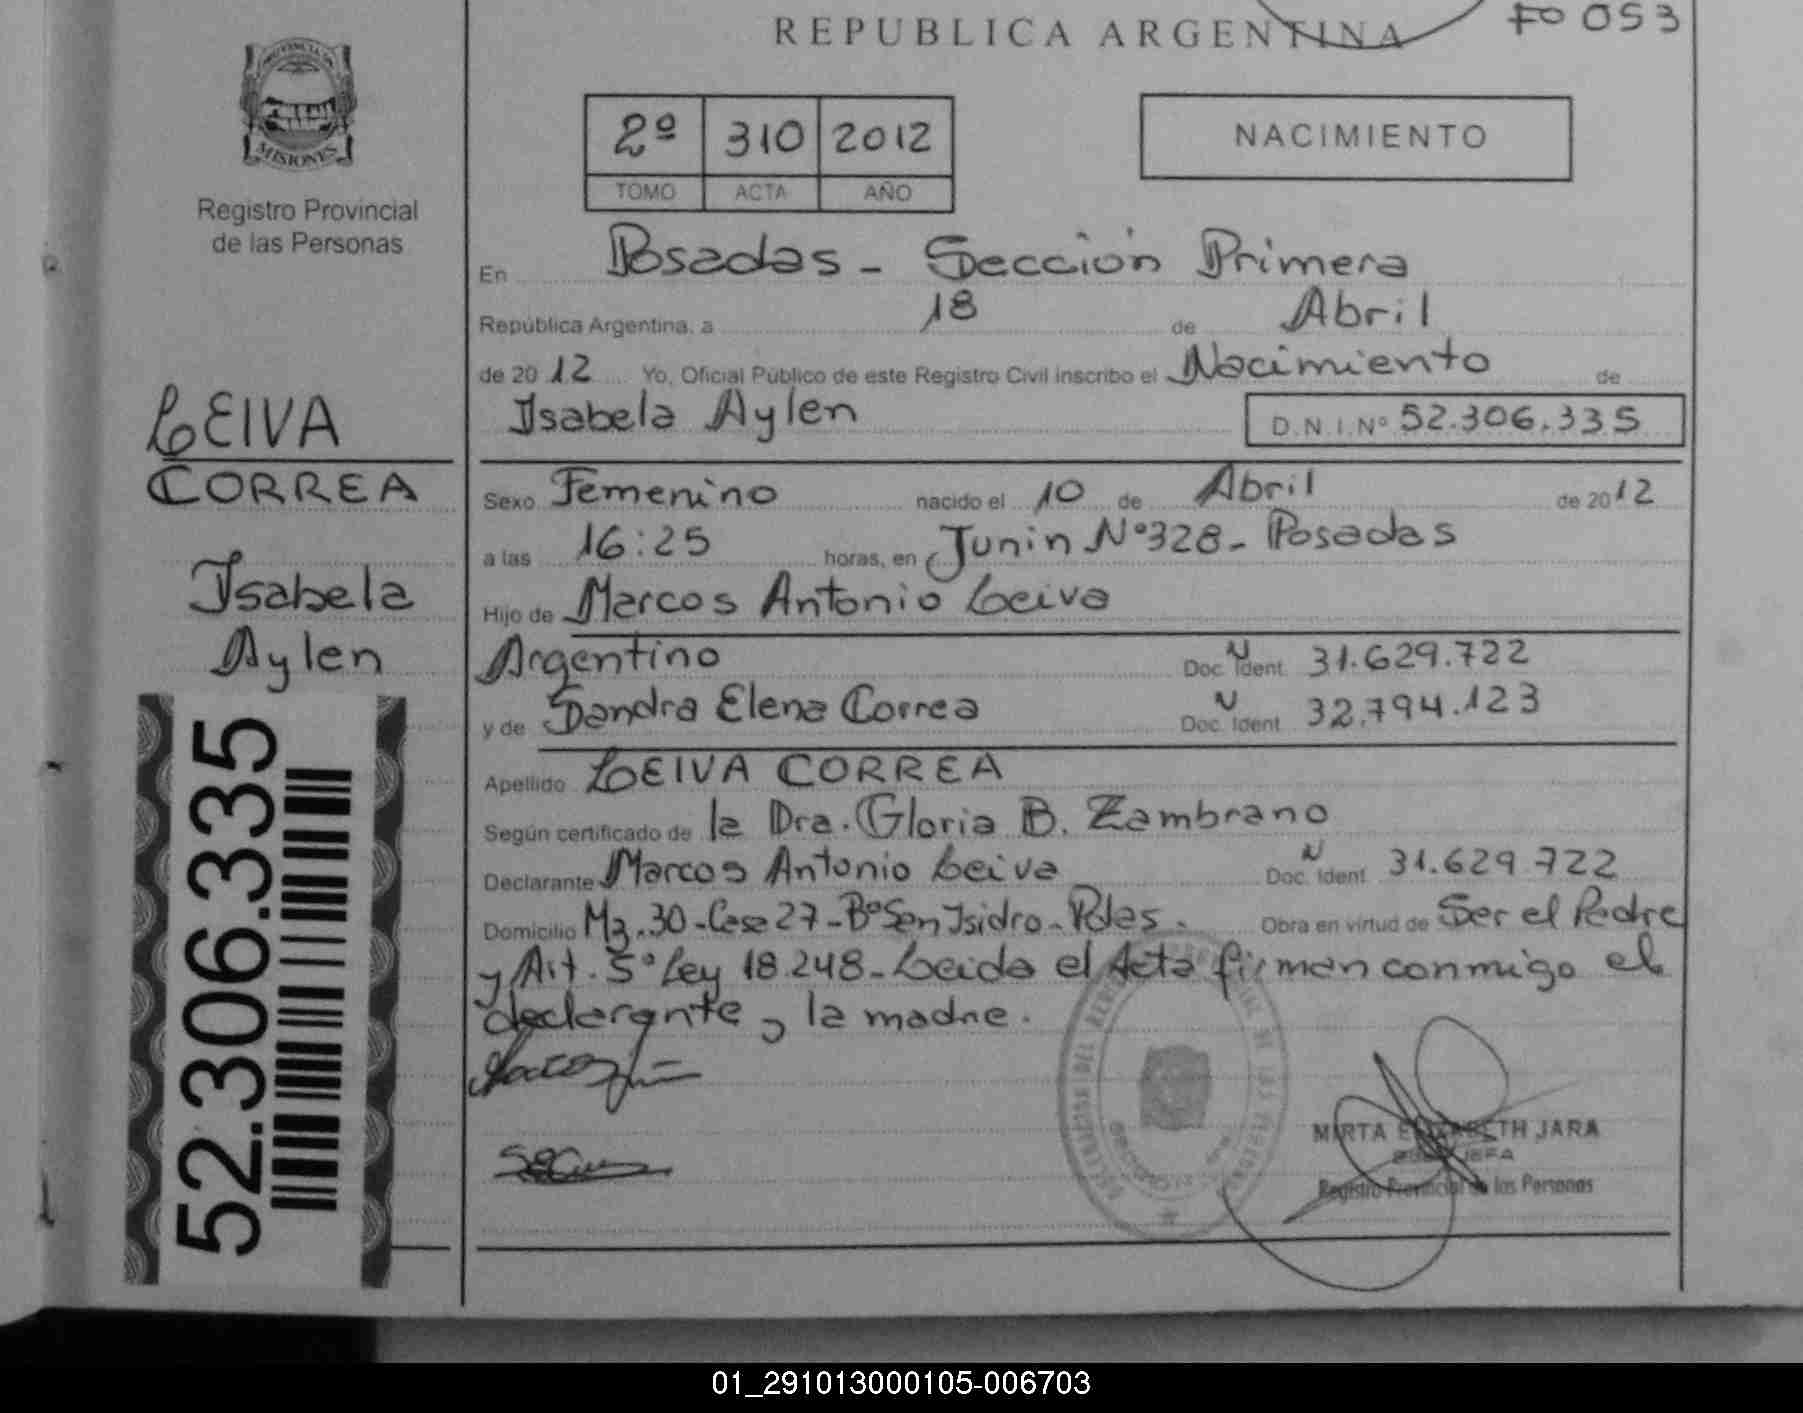 REPUBLICA ARGENTINA
Fo 053
PROVINCIA DE
MISIONES
Registro Provincial
de las Personas
2º 310 2012
TOMO ACTA AÑO
NACIMIENTO
En Posadas - Sección Primera
República Argentina, a 18 de Abril
de 2012 Yo, Oficial Público de este Registro Civil inscribo el Nacimiento de
Isabela Aylen D.N.I.Nº 52.306.335
LEIVA
CORREA
Isabela
Aylen
52.306.335
Sexo Femenino nacido el 10 de Abril de 2012
a las 16:25 horas, en Junin Nº328- Posadas
Hijo de Marcos Antonio Leiva
Argentino Doc. Ident. N 31.629.722
y de Sandra Elena Correa Doc. Ident. N 32.794.123
Apellido LEIVA CORREA
Según certificado de la Dra. Gloria B. Zambrano
Declarante Marcos Antonio Leiva Doc. Ident. N 31.629.722
Domicilio Mz.30-Casa 27-Bº San Isidro-Pdas. Obra en virtud de Ser el Padre
y Art. 5º Ley 18.248-Leida el Acta firman conmigo el
declarante y la madre.
MIRTA ELIZABETH JARA
JEFA
Registro Provincial de las Personas
01_291013000105-006703